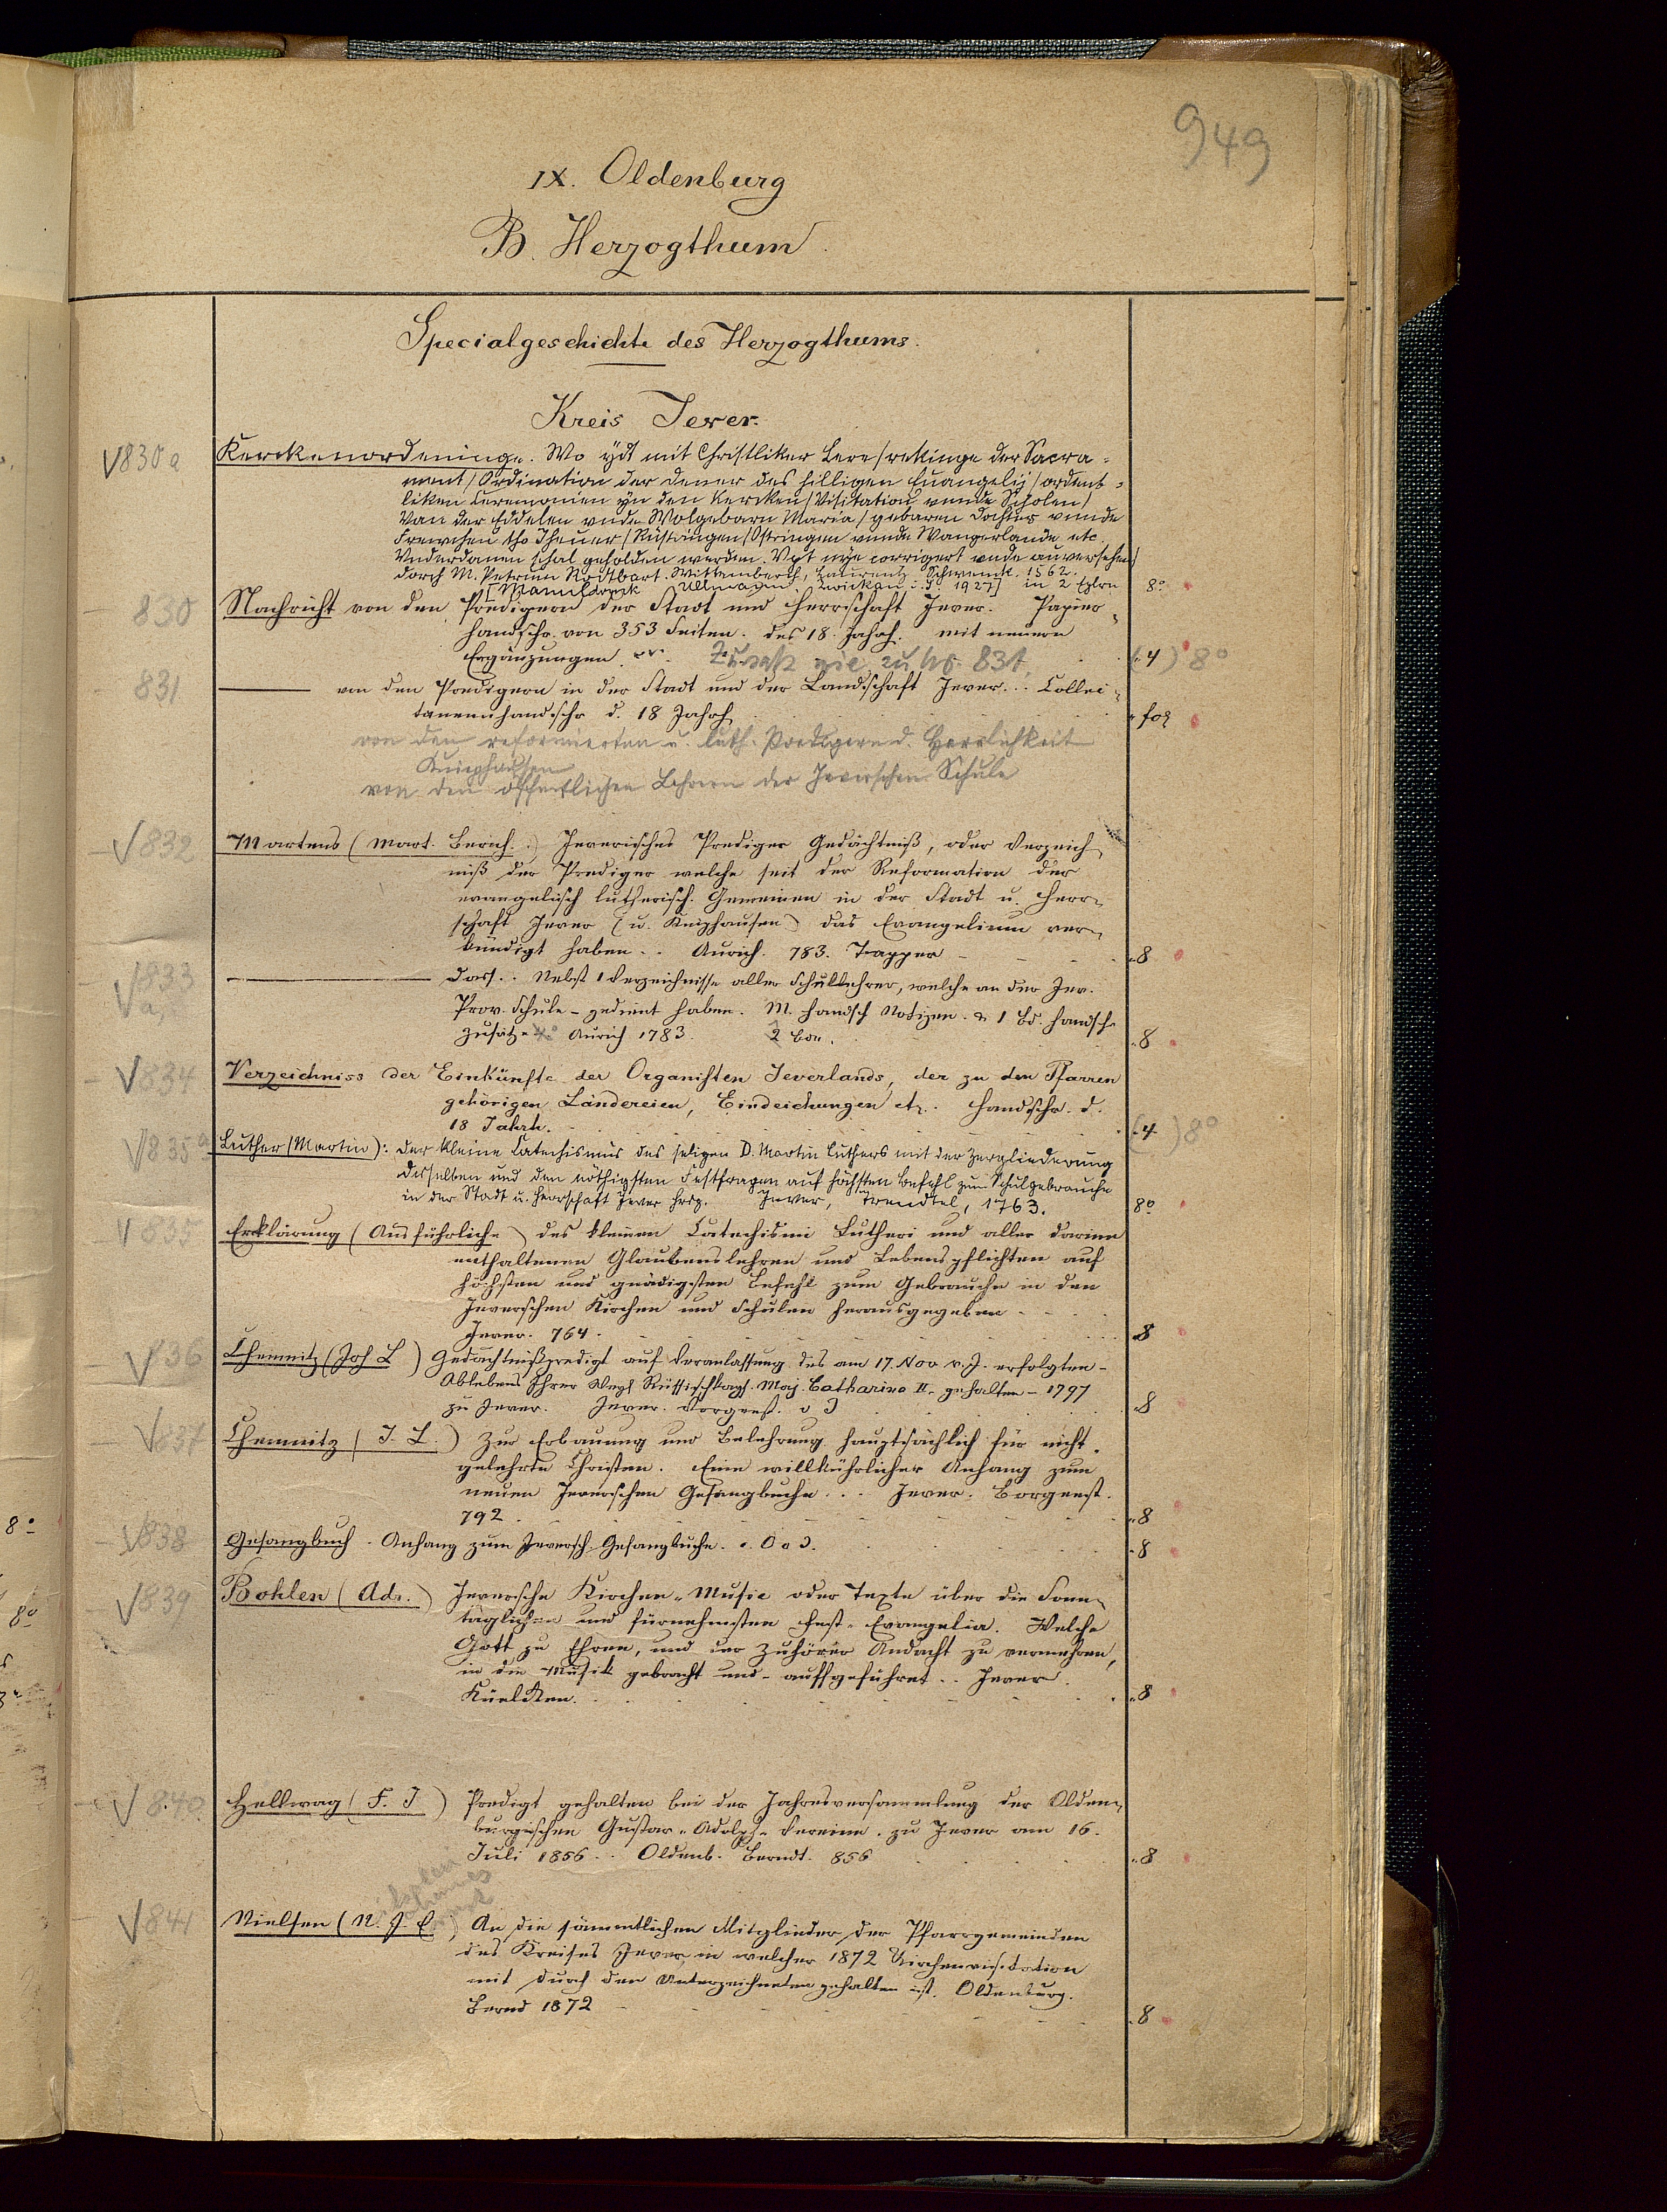 949
IX. Oldenburg
B. Herzogthum
Specialgeschichte des Herzogthums.
Kreis Jever.
V830a Kerckenordeninge. Wo ydt mit Christliker Lere / rekinge der Sacra-
ment / Ordination der Dener des hilligen Euangelij / ordent-
liken Ceremonien yn den Kercken / Visitation vnnde Scholen /
Van der Eddelen vnde Wolgebarn Maria / gebaren Dochter vnnde
Frewchen tho Jheuer / Rüstringen / Ostringen vnnde Wangerlande etc.
Vnderdanen schal geholden werden. Vpt nye corrigert vnde auversehen /
dorch M. Petrum Rodtbart. Wittemberch, Laurentz Schwenck. 1562.
[Manuldruck Ullmann. Zwickau i. S. 1927] in 2 Explrn 8°
830 Nachricht von den Predigern der Stadt und Herrschaft Jever. Papier-
handschr. von 353 Seiten. des 18. Jahrh. mit neuern
Ergänzungen. Zusatz wie zu No. 831 (4) 8°
831 von den Predigern in der Stadt und der Landschaft Jever... Collec-
taneenhandschr d. 18 Jahrh fol
von den reformierten u. luth. Predigern d. Herrlichkeit
Kniephausen
von den öffentlichen Lehrern der Jeverschen Schule
V832 Martens (Mart. Berich.) Jeverisches Prediger Gedächtniß, oder Verzeich-
niß der Prediger welche seit der Reformation der
evangelisch lutherisch. Gemeinen in der Stadt u. Herr-
schaft Jever (u. Kniphausen) das Evangelium ver-
kündigt haben.. Aurich. 783. Tapper 8
V833 a, Dass.. Nebst 1 Verzeichnisse aller Schullehrer, welche an der Jev.
Prov. Schule - gedient haben. M. handsch Notizen. & 1 Bd. handsch
Zusätze Aurich 1783. 2 Bde. 8
V834 Verzeichniss der Einkünfte der Organisten Jeverlands, der zu den Pfarren
gehörigen Ländereien, Eindeichungen etc. Handschr. d.
18 Jahrh. (4) 8°
V835a Luther (Martin): Der kleine Catechismus des seligen D. Martin Luthers mit der Zergliederung
desselben und den nöthigsten Festfragen auf höchsten Befehl zum Schulgebrauche
in der Stadt u. Herrschaft Jever hrsg. Jever, Trendtel, 1763. 8°
V835 Erklärung (Ausführliche) des kleinen Catechismi Lutheri und aller darinn
enthaltenen Glaubenslehren und Lebenspflichten auf
höchsten und gnädigsten Befehl zum Gebrauche in den
Jeverschen Kirchen und Schulen herausgegeben
Jever. 764. 8
V836 Chemnitz (Joh L) Gedächtnißpredigt auf Veranlassung des am 17. Nov. v. J. erfolgten -
Ablebens Ihrer Russischkays. Maj. Catharina II. gehalten - 1797
zu Jever. Jever. Borgeest. o J 8
V837 Chemnitz (J. L.) Zur Erbauung und Belehrung hauptsächlich für nicht-
gelehrte Christen. Ein willkührlicher Anhang zum
neuen Jeverschen Gesangbuche... Jever. Borgeest.
792. 8
V838 Gesangbuch. Anhang zum Jeversch Gesangbuche.. O o J. 8
V839 Bohlen (Adr.) Jeversche Kirchen-Music oder Texte über die Sonn-
täglichen und fürnehmsten Fest-Evangelia. Welche
Gott zu Ehren, und der Zuhörer Andacht zu vermehren,
in die Musik gebracht und - auffgeführet.. Jever.
Küelken. 8
V840 Hellwag (F. J) Predigt gehalten bei der Jahresversammlung der Olden-
burgischen Gustav-Adolph-Vereine. zu Jever am 16.
Juli 1856.. Oldenb. Berndt. 856 8
V841 Nielsen (N. J. E.) An die sämmtlichen Mitglieder der Pfarrgemeinden
des Kreises Jever in welcher 1872 Kirchenvisitation
mit durch den Unterzeichneten gehalten ist. Oldenburg.
Bernd 1872 8